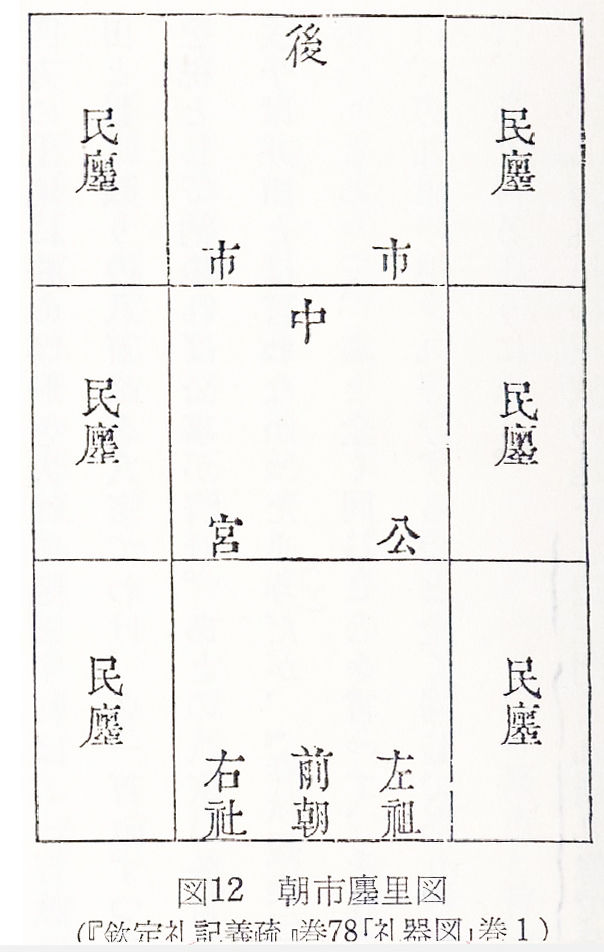 後
民廛
民廛
市
市
中
民廛
民廛
宮
公
民廛
民廛
右社
前朝
左祖
図12 朝市廛里図
(『欽定礼記義疏』巻78「礼器図」巻1)